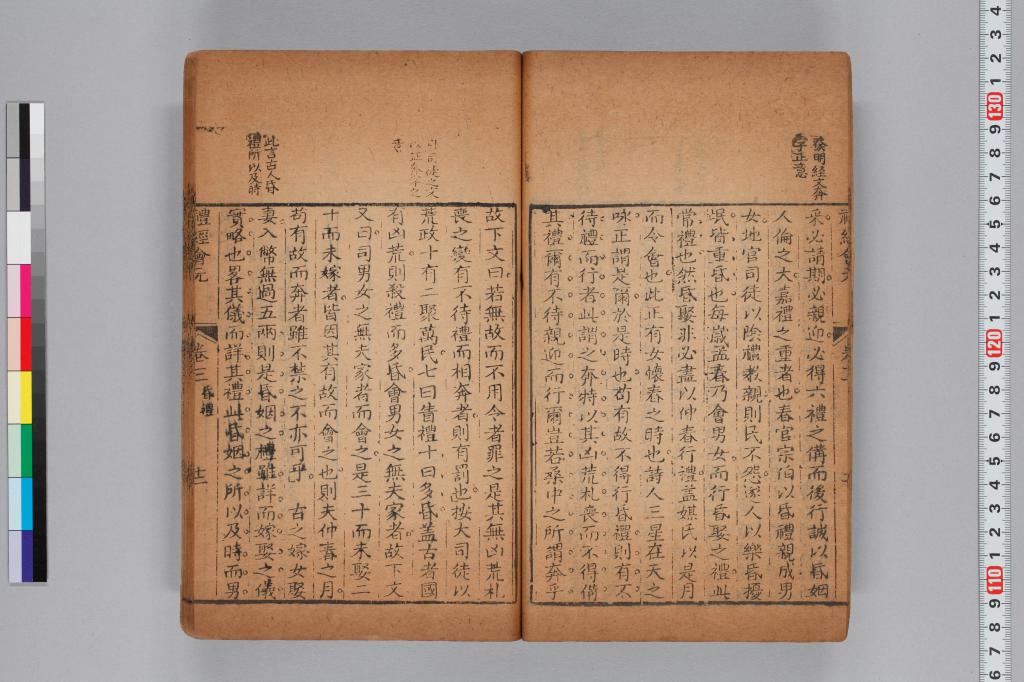 發明經文奔
字正意
采必請期必親迎必得六禮之備而後行誠以昏姻
人倫之大嘉禮之重者也春官宗伯以昏禮親成男
女地官司徒以陰禮教親則民不怨遂人以樂昏擾
氓皆重昏也每歲孟春乃會男女而行昏娶之禮此
常禮也然昏娶非必盡以仲春行禮盖媒氏以是月
而令會也此正有女懷春之時也詩人三星在天之
咏正謂是爾於是時也苟有故不得行昏禮則有不
待禮而行者此謂之奔特以其凶荒札喪而不得備
其禮爾有不待親迎而行爾豈若桑中之所謂奔乎
故下文曰若無故而不用令者罪之是其無凶荒札
喪之變有不待禮而相奔者則有罰也按大司徒以
荒政十有二聚萬民七曰眚禮十曰多昏盖古者國
有凶荒則殺禮而多昏會男女之無夫家者故下文
又曰司男女之無夫家者而會之是三十而未娶二
十而未嫁者皆因其有故而會之也則夫仲春之月
苟有故而奔者雖不禁之不亦可乎 古之嫁女娶
妻入幣無過五兩則是昏姻之禮雖詳而嫁娶之儀
實略也畧其儀而詳其禮此昏姻之所以及時而男
此言古人昏
禮所以及時
禮經會元
卷三
昏禮
十二